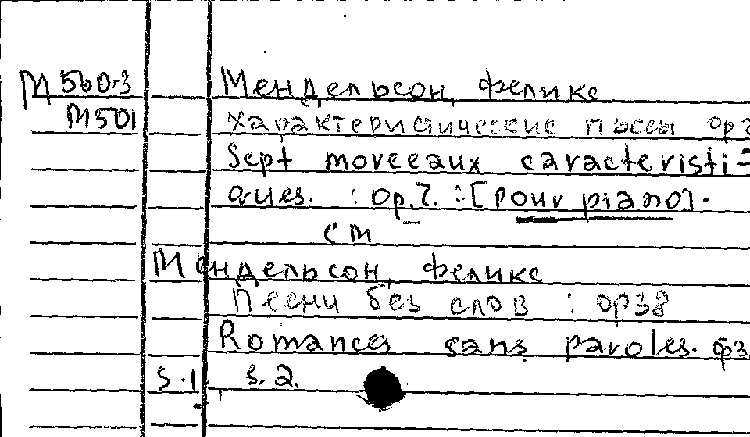 М 560-3 Мендельсон, феликс
М501 характеристические пьесы op7
Sept morceaux caracteristi-
ques. : op.7. : [pour piano].
см
Мендельсон, феликс
Песни без слов : op38
Romances sans paroles.
S.1 S.2.